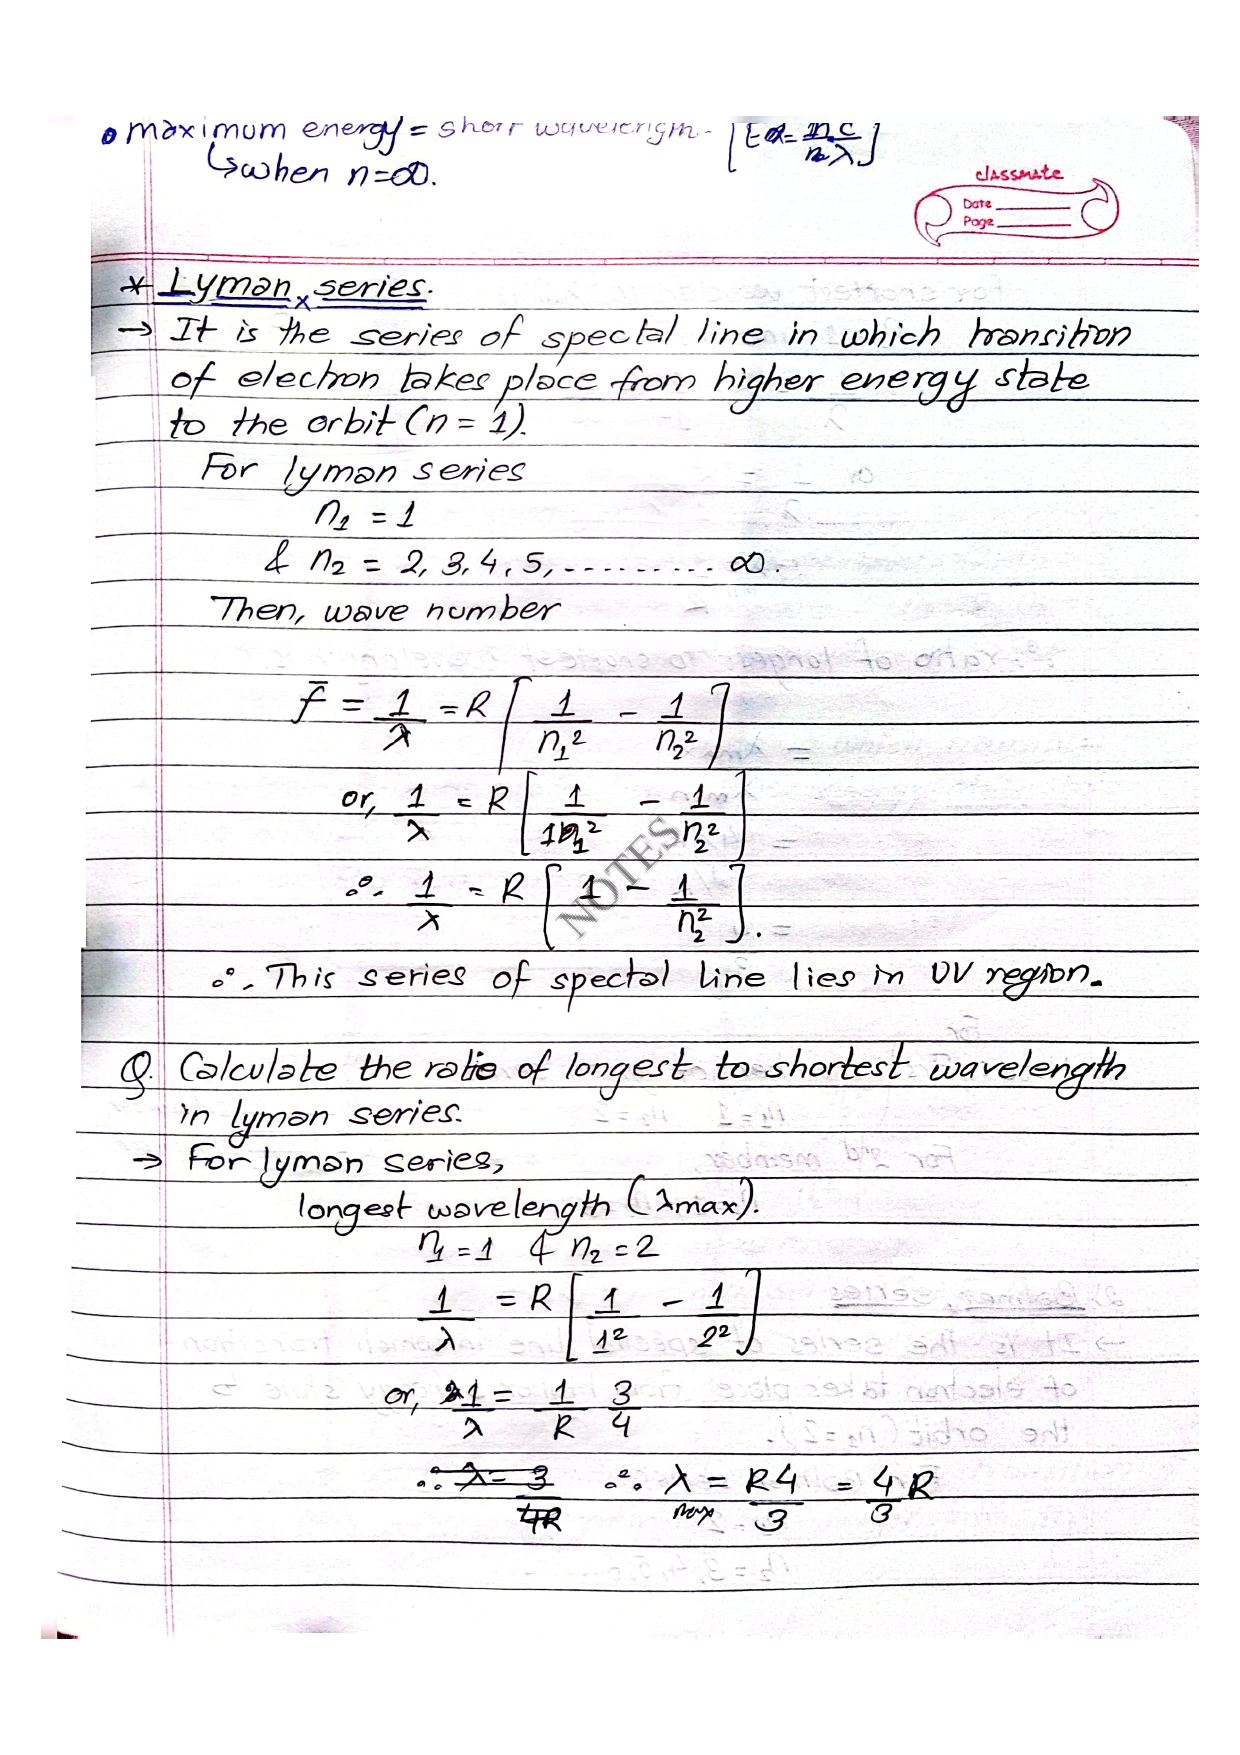 • maximum energy = short wavelength - [E = hc/λ]
↳ when n=∞.
classmate
Date
Page
* Lyman series.
→ It is the series of spectal line in which transition
of electron takes place from higher energy state
to the orbit (n = 1).
For lyman series
n₁ = 1
& n₂ = 2, 3, 4, 5, .......... ∞.
Then, wave number
f̄ = 1/λ = R [1/n₁² - 1/n₂²]
or, 1/λ = R [1/1² - 1/n₂²]
∴ 1/λ = R [1 - 1/n₂²].
NOTES
∴ This series of spectal line lies in UV region.
Q. Calculate the ratio of longest to shortest wavelength
in lyman series.
→ For lyman series,
longest wavelength (λmax).
n₁ = 1 & n₂ = 2
1/λ = R [1/1² - 1/2²]
or, 1/λ = 1/R 3/4
∴ λ = 3/4R ∴ λmax = R4/3 = 4/3 R